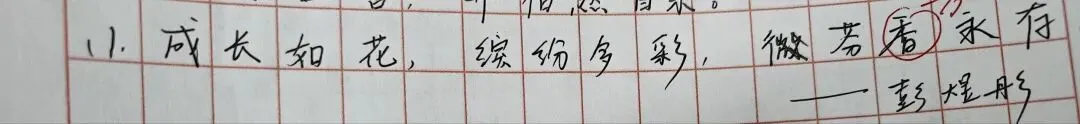 11. 成长如花，缤纷多彩，微芳香永存
——彭煜彤